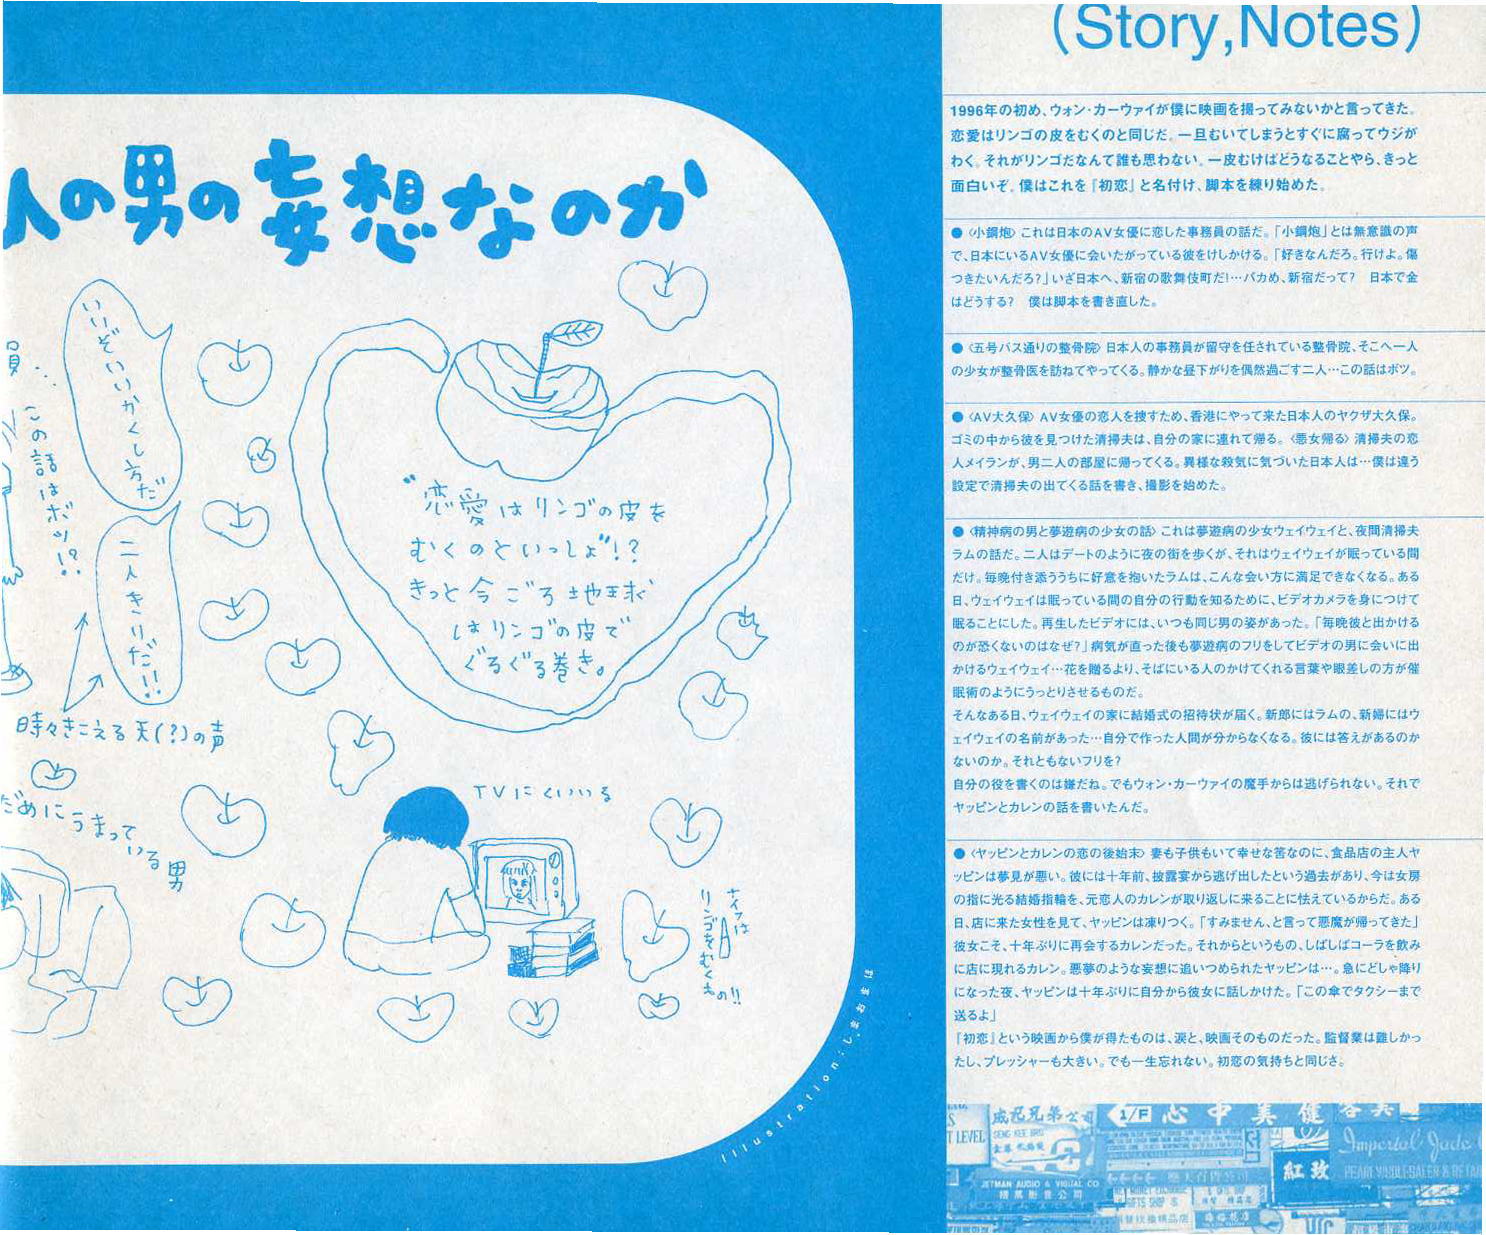 人の男の妄想なのか
いいぞいいかくし方だ
この話はボツ!?
二人きりだ!!
時々きこえる天(?)の声
だめにうまって
いる男
“恋愛はリンゴの皮を
むくのといっしょ”!?
きっと今ごろ地球
はリンゴの皮で
ぐるぐる巻き。
TVにくいいる
ナイフは
リンゴをむくもの!!
Illustration:しまおまほ
(Story,Notes)
1996年の初め、ウォン・カーウァイが僕に映画を撮ってみないかと言ってきた。
恋愛はリンゴの皮をむくのと同じだ。一旦むいてしまうとすぐに腐ってウジが
わく。それがリンゴだなんて誰も思わない。一皮むけばどうなることやら、きっと
面白いぞ。僕はこれを『初恋』と名付け、脚本を練り始めた。
●〈小鋼炮〉これは日本のAV女優に恋した事務員の話だ。「小鋼炮」とは無意識の声
で、日本にいるAV女優に会いたがっている彼をけしかける。「好きなんだろ。行けよ。傷
つきたいんだろ?」いざ日本へ、新宿の歌舞伎町だ!…バカめ、新宿だって? 日本で金
はどうする? 僕は脚本を書き直した。
●〈五号バス通りの整骨院〉日本人の事務員が留守を任されている整骨院、そこへ一人
の少女が整骨医を訪ねてやってくる。静かな昼下がりを偶然過ごす二人…この話はボツ。
●〈AV大久保〉AV女優の恋人を捜すため、香港にやって来た日本人のヤクザ大久保。
ゴミの中から彼を見つけた清掃夫は、自分の家に連れて帰る。〈悪女帰る〉清掃夫の恋
人メイランが、男二人の部屋に帰ってくる。異様な殺気に気づいた日本人は…僕は違う
設定で清掃夫の出てくる話を書き、撮影を始めた。
●〈精神病の男と夢遊病の少女の話〉これは夢遊病の少女ウェイウェイと、夜間清掃夫
ラムの話だ。二人はデートのように夜の街を歩くが、それはウェイウェイが眠っている間
だけ。毎晩付き添ううちに好意を抱いたラムは、こんな会い方に満足できなくなる。ある
日、ウェイウェイは眠っている間の自分の行動を知るために、ビデオカメラを身につけて
眠ることにした。再生したビデオには、いつも同じ男の姿があった。「毎晩彼と出かける
のが恐くないのはなぜ?」病気が直った後も夢遊病のフリをしてビデオの男に会いに出
かけるウェイウェイ…花を贈るより、そばにいる人のかけてくれる言葉や眼差しの方が催
眠術のようにうっとりさせるものだ。
そんなある日、ウェイウェイの家に結婚式の招待状が届く。新郎にはラムの、新婦にはウ
ェイウェイの名前があった…自分で作った人間が分からなくなる。彼には答えがあるのか
ないのか。それともないフリを?
自分の役を書くのは嫌だね。でもウォン・カーウァイの魔手からは逃げられない。それで
ヤッピンとカレンの話を書いたんだ。
●〈ヤッピンとカレンの恋の後始末〉妻も子供もいて幸せな筈なのに、食品店の主人ヤ
ッピンは夢見が悪い。彼には十年前、披露宴から逃げ出したという過去があり、今は女房
の指に光る結婚指輪を、元恋人のカレンが取り返しに来ることに怯えているからだ。ある
日、店に来た女性を見て、ヤッピンは凍りつく。「すみません、と言って悪魔が帰ってきた」
彼女こそ、十年ぶりに再会するカレンだった。それからというもの、しばしばコーラを飲み
に店に現れるカレン。悪夢のような妄想に追いつめられたヤッピンは…。急にどしゃ降り
になった夜、ヤッピンは十年ぶりに自分から彼女に話しかけた。「この傘でタクシーまで
送るよ」
『初恋』という映画から僕が得たものは、涙と、映画そのものだった。監督業は難しかっ
たし、プレッシャーも大きい。でも一生忘れない。初恋の気持ちと同じさ。
T LEVEL
成記兄弟公司
SENG KEE BRO
1/F
心中美健
Imperial Jade
紅玫
PEARL WHOLESALER & RETAI
JETMAN AUDIO & VISUAL CO
精萬影音公司